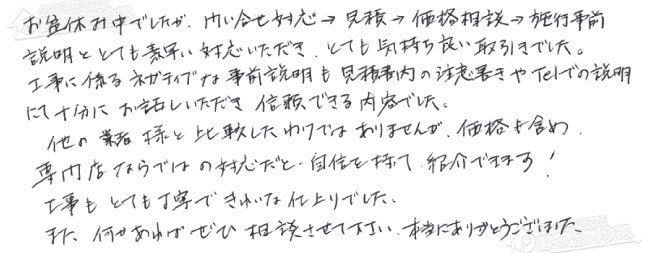 お盆休み中でしたが、問い合せ対応→見積→価格相談→施行事前
説明ととても素早い対応いただき、とても気持ち良い取引きでした。
工事に係るネガティブな事前説明も見積書内の注意書きやTelでの説明
にて十分にお話しいただき信頼できる内容でした。
他の業者様と比較したわけではありませんが、価格も含め、
専門店ならではの対応だと自信を持て紹介できます!
工事もとても丁寧できれいな仕上りでした。
また、何かあればぜひ相談させて下さい。本当にありがとうございました。